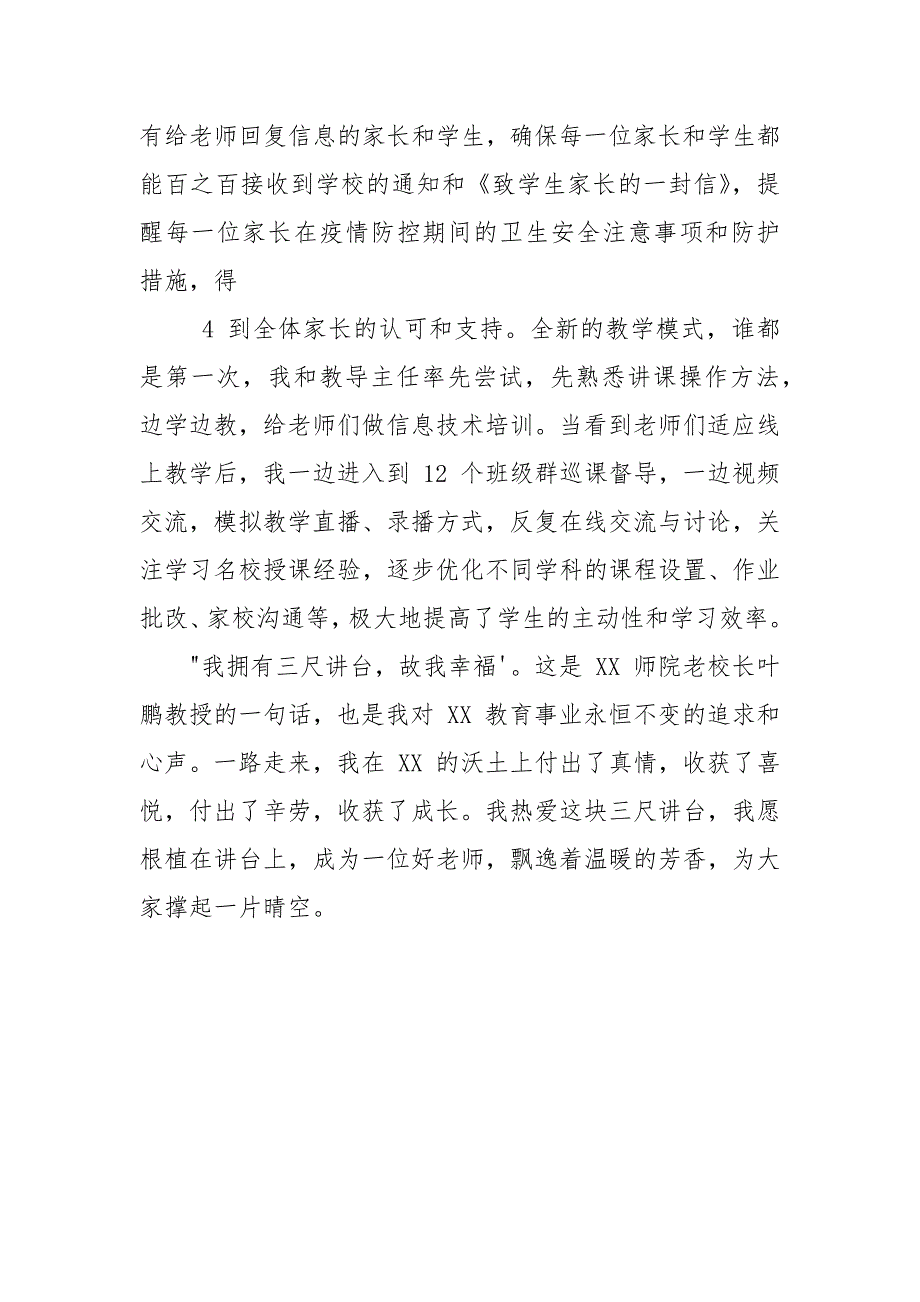 有给老师回复信息的家长和学生，确保每一位家长和学生都
能百之百接收到学校的通知和《致学生家长的一封信》，提
醒每一位家长在疫情防控期间的卫生安全注意事项和防护
措施，得
4 到全体家长的认可和支持。全新的教学模式，谁都
是第一次，我和教导主任率先尝试，先熟悉讲课操作方法，
边学边教，给老师们做信息技术培训。当看到老师们适应线
上教学后，我一边进入到 12 个班级群巡课督导，一边视频
交流，模拟教学直播、录播方式，反复在线交流与讨论，关
注学习名校授课经验，逐步优化不同学科的课程设置、作业
批改、家校沟通等，极大地提高了学生的主动性和学习效率。
"我拥有三尺讲台，故我幸福'。这是 XX 师院老校长叶
鹏教授的一句话，也是我对 XX 教育事业永恒不变的追求和
心声。一路走来，我在 XX 的沃土上付出了真情，收获了喜
悦，付出了辛劳，收获了成长。我热爱这块三尺讲台，我愿
根植在讲台上，成为一位好老师，飘逸着温暖的芳香，为大
家撑起一片晴空。